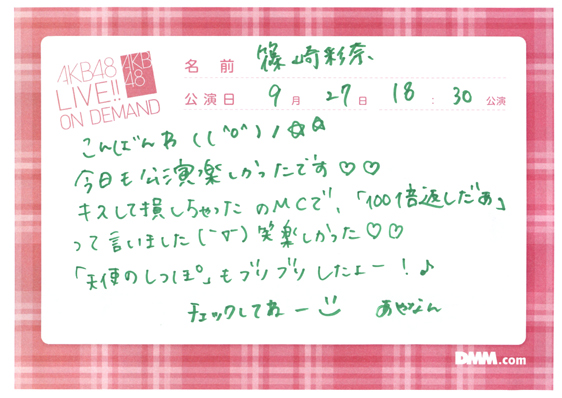 AKB48
LIVE!!
ON DEMAND
AKB
48
名前 篠崎彩奈
公演日 9月 27日 18:30 公演
こんばんわ ((^o^)ノ☆☆
今日も公演楽しかったです♡♡
キスして損しちゃった のMCで、「100倍返しだぁ」
って言いました(¯∇¯)笑楽しかった♡♡
「天使のしっぽ」もブリブリしたよー!♪
チェックしてねー あやなん
DMM.com